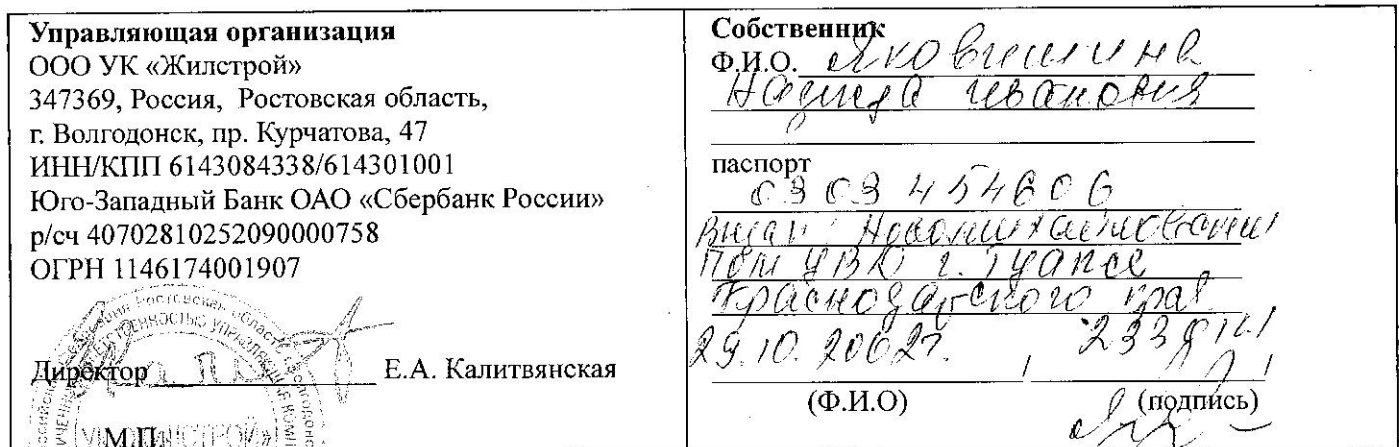 Управляющая организация
ООО УК «Жилстрой»
347369, Россия, Ростовская область,
г. Волгодонск, пр. Курчатова, 47
ИНН/КПП 6143084338/614301001
Юго-Западный Банк ОАО «Сбербанк России»
р/сч 40702810252090000758
ОГРН 1146174001907
Директор Е.А. Калитвянская
М.П.
Собственник
Ф.И.О.
Ивановна
паспорт
0303 454606
Выдан Новомихайловским
ПОМ УВД г. Туапсе
Краснодарского края
29.10.2002г.
(Ф.И.О) (подпись)